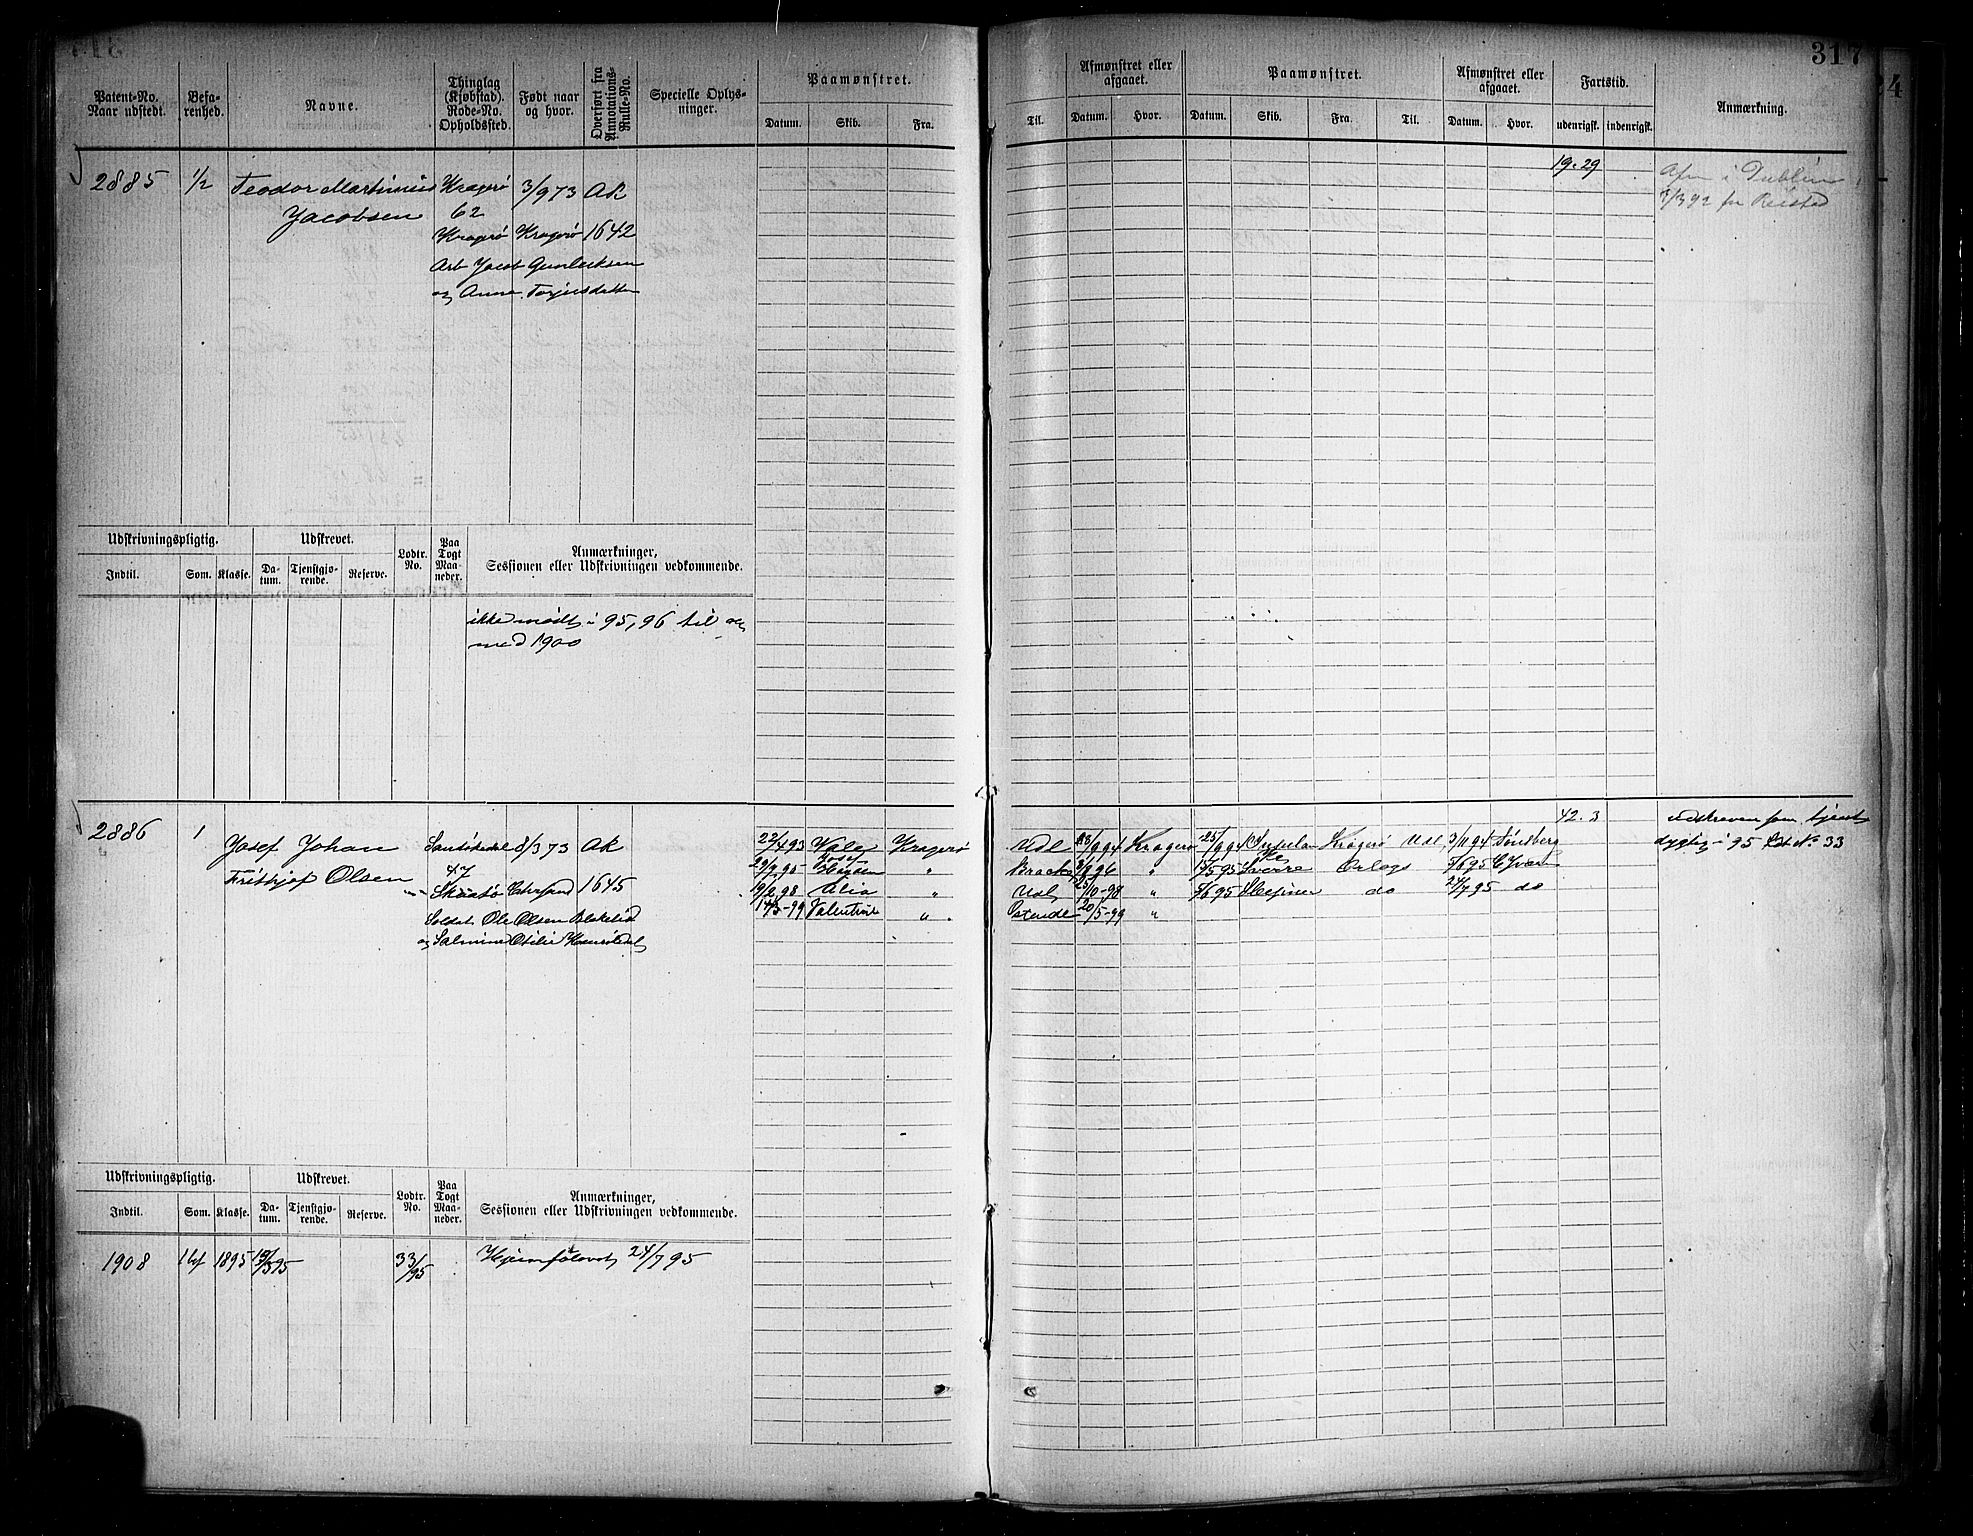 317
24
Patent-No. Naar udstedt.
Befa-renhed.
Navne.
Thinglag (Kjøbstad). Rode-No. Opholdssted.
Født naar og hvor.
Overført fra Annotations-Rulle-No.
Specielle Oplys-ninger.
Paamønstret.
Datum. Skib. Fra.
Til.
Afmønstret eller afgaaet.
Datum. Hvor.
Paamønstret.
Datum. Skib. Fra. Til.
Afmønstret eller afgaaet.
Datum. Hvor.
Fartstid.
udenrigsk. indenrigsk.
Anmærkning.
2885 1/2 Teodor Martinius Kragerø 3/9 73 AK
Jacobsen 62
Kragerø Kragerø 1642
Arb Jacob Gunleiksen
og Anne Torjusdatter
19.29
Afm i Dublin
/3 92 fra
Udskrivningspligtig. Udskrevet. Lodtr. No. Paa Togt Maa-neder. Anmærkninger, Sessionen eller Udskrivningen vedkommende.
Indtil. Som. Klasse. Da-tum. Tjenstgjø-rende. Reserve.
ikke mødt i 95, 96 til og
med 1900
2886 1 Josef Johan 8/3 73 AK
Frithjof Olsen 47
Skaatø 1645
Soldat Ole Olsen
og Otilie
22/4 93 Kragerø
29/9 95 "
19/2 98 "
14/3-99 Valentine "
Udl 9 94 Kragerø 25/9 94 Kragerø Udl 3/11 94
96 " 95 Sverre Orlogs 5/6 95
Udl /10-98 " 5/6 95 do 24/7 95 do
Ostende 20/5-99 "
42.3
Udskreven som tjenst
dygtig i 95 Lot No 33
Udskrivningspligtig. Udskrevet. Lodtr. No. Paa Togt Maa-neder. Anmærkninger, Sessionen eller Udskrivningen vedkommende.
Indtil. Som. Klasse. Da-tum. Tjenstgjø-rende. Reserve.
1908 1895 19/3 95 33/95 24/7 95